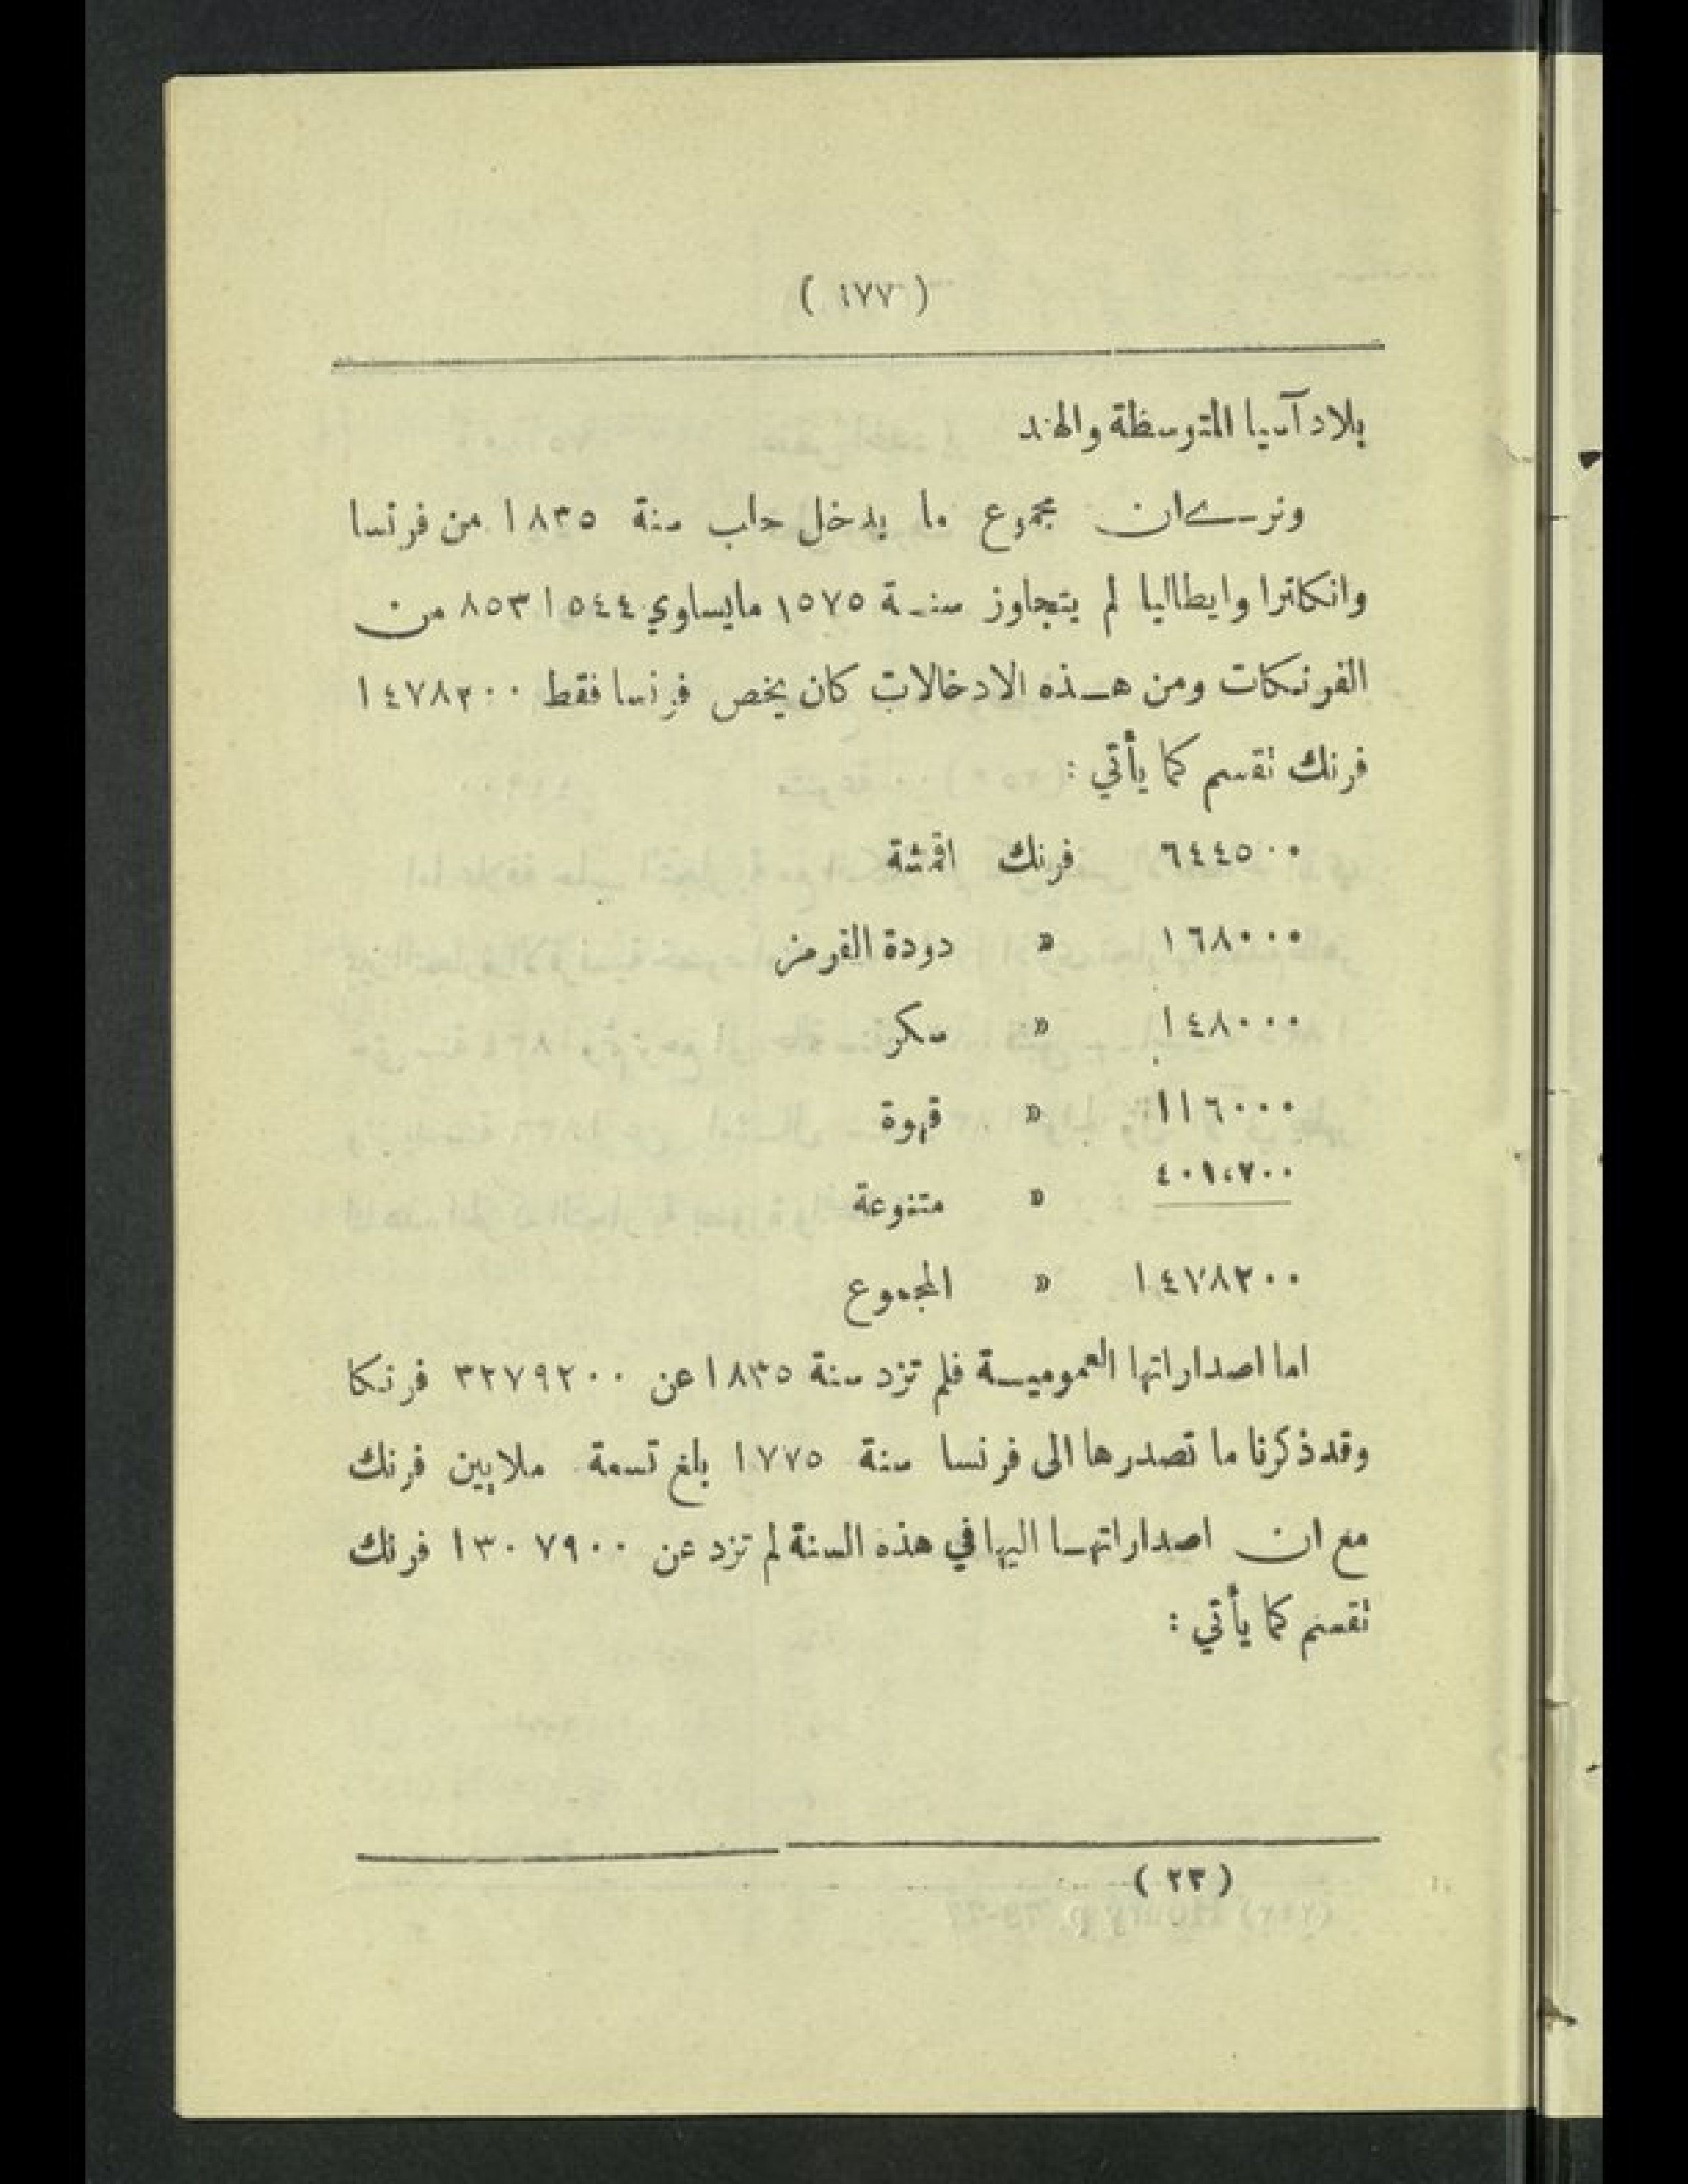 ( ١٧٧ )
بلاد آسيا المتوسطة والهند
ونرى ان مجموع ما يدخل حلب سنة ١٨٣٥ من فرنسا
وانكلترا وايطاليا لم يتجاوز سنة ١٥٧٥ مايساوي ٨٥٣١٥٤٤ من
الفرنكات ومن هذه الادخالات كان يخص فرنسا فقط ١٤٧٨٢٠٠
فرنك تقسم كما يأتي :
٦٤٤٥٠٠ فرنك اقمشة
١٦٨٠٠٠ » دودة القرمز
١٤٨٠٠٠ » سكر
١١٦٠٠٠ » قهوة
٤٠١،٧٠٠ » متنوعة
١٤٧٨٢٠٠ » المجموع
اما اصداراتها العمومية فلم تزد سنة ١٨٣٥ عن ٣٢٧٩٢٠٠ فرنكا
وقد ذكرنا ما تصدرها الى فرنسا سنة ١٧٧٥ بلغ تسعة ملايين فرنك
مع ان اصداراتها اليها في هذه السنة لم تزد عن ١٣٠٧٩٠٠ فرنك
تقسم كما يأتي :
( ٢٣ )